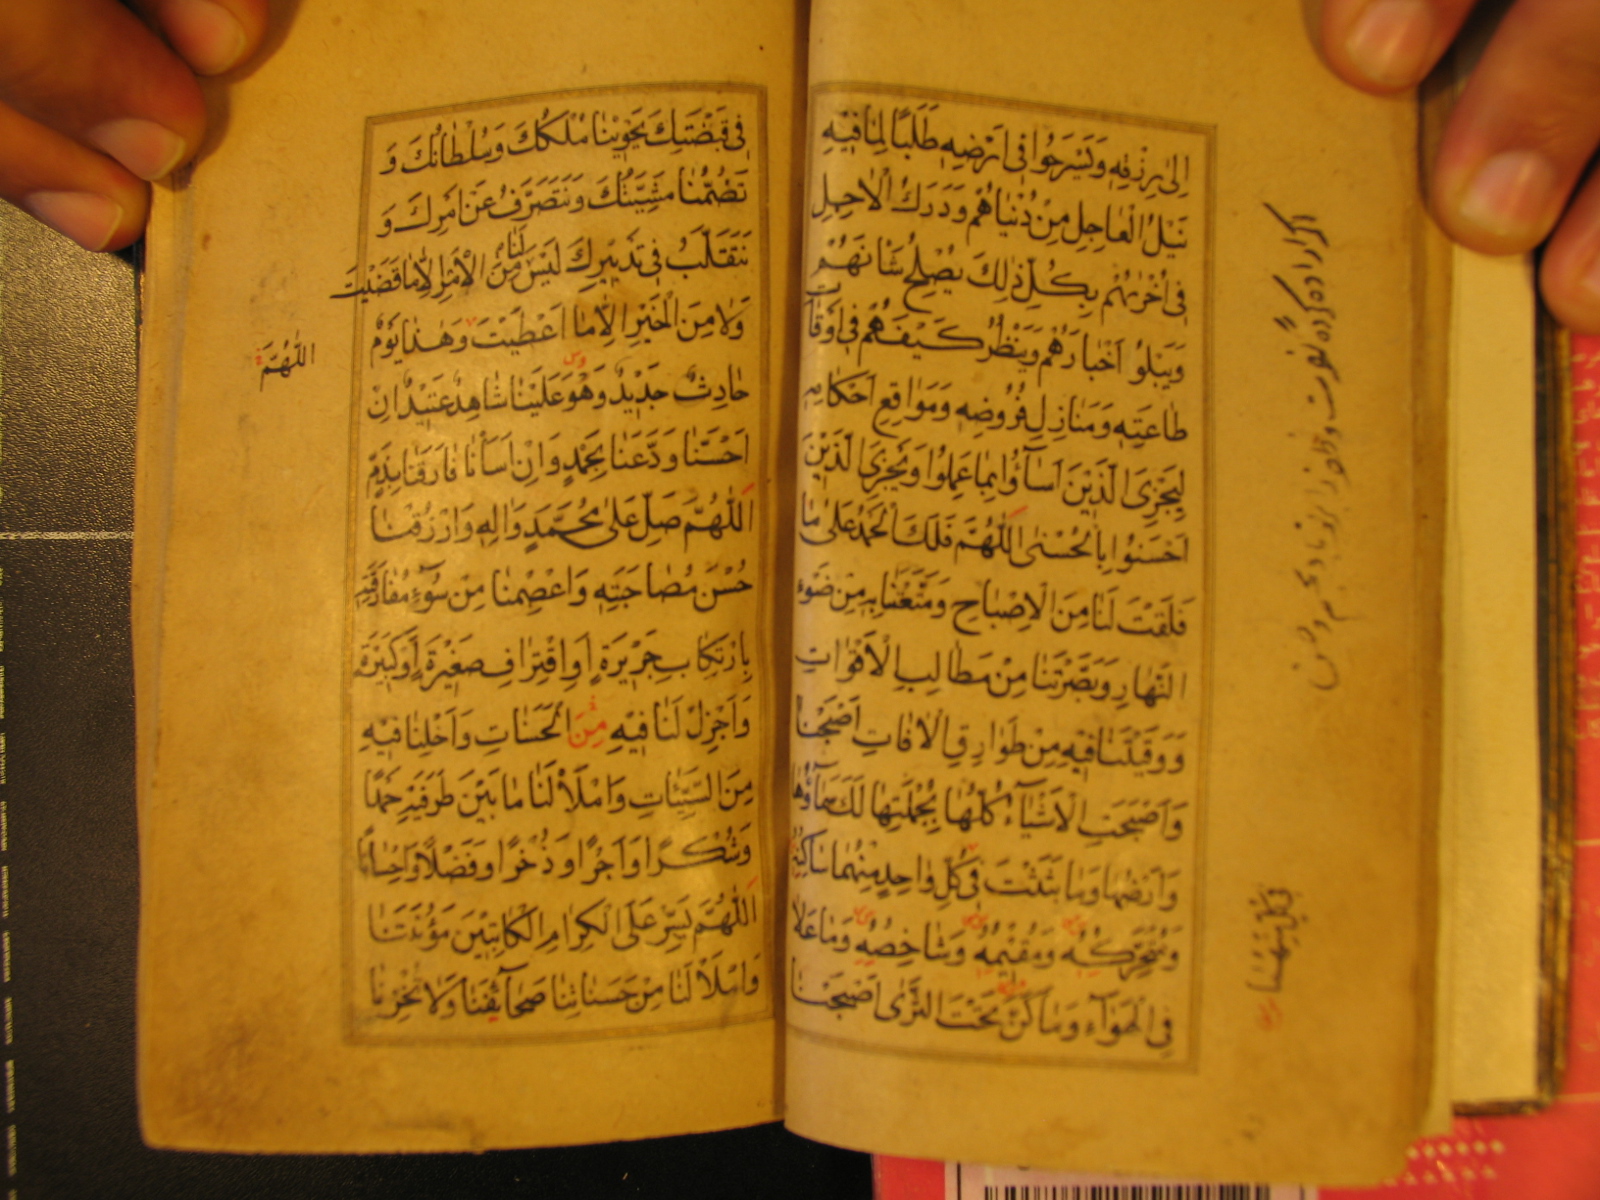 اِلىٰ رِزْقِهِ وَيَسْرَحُوا فى اَرْضِهِ طَلَبًا لِمٰا فيهِ
نَيْلُ الْعٰاجِلِ مِنْ دُنْيٰاهُمْ وَدَرَكُ الْاٰجِلِ
فى اُخْرٰيهُمْ بِكُلِّ ذٰلِكَ يُصْلِحُ شَاْنَهُمْ
وَيَبْلُوا اَخْبارَهُمْ وَيَنْظُرُ كَيْفَ هُمْ فى اَوْقاتِ
طاعَتِهِ وَمَنازِلِ فُرُوضِهِ وَمَواقِعِ اَحْكامِهِ
لِيَجْزِىَ الَّذينَ اَسآؤُا بِما عَمِلُوا وَيَجْزِىَ الَّذينَ
اَحْسَنُوا بِالْحُسْنىٰ اَللّٰهُمَّ فَلَكَ الْحَمْدُ عَلىٰ مٰا
فَلَقْتَ لَنٰا مِنَ الْاِصْبٰاحِ وَمَتَّعْتَنٰا بِهِ مِنْ ضَوْءِ
النَّهٰارِ وَبَصَّرْتَنٰا مِنْ مَطٰالِبِ الْاَقْوٰاتِ
وَوَقَيْتَنٰا فيهِ مِنْ طَوٰارِقِ الْاٰفٰاتِ اَصْبَحْنٰا
وَاَصْبَحَتِ الْاَشْيٰآءُ كُلُّهٰا بِجُمْلَتِهٰا لَكَ سَمٰآؤُهٰا
وَاَرْضُهٰا وَمٰا بَثَثْتَ فى كُلِّ وٰاحِدٍ مِنْهُمٰا سٰاكِنُهُ
وَمُتَحَرِّكُهُ وَمُقيمُهُ وَشٰاخِصُهُ وَمٰا عَلٰا
فِى الْهَوٰآءِ وَمٰا كَنَّ تَحْتَ الثَّرٰى اَصْبَحْنٰا
فى قَبْضَتِكَ يَحْوينٰا مُلْكُكَ وَسُلْطٰانُكَ وَ
تَضُمُّنٰا مَشِيَّتُكَ وَنَتَصَرَّفُ عَنْ اَمْرِكَ وَ
نَتَقَلَّبُ فى تَدْبيرِكَ لَيْسَ لَنٰا مِنَ الْاَمْرِ اِلّٰا مٰا قَضَيْتَ
وَلٰا مِنَ الْخَيْرِ اِلّٰا مٰا اَعْطَيْتَ وَهٰذٰا يَوْمٌ
حٰادِثٌ جَديدٌ وَهُوَ عَلَيْنٰا شٰاهِدٌ عَتيدٌ اِنْ
اَحْسَنّٰا وَدَّعَنٰا بِحَمْدٍ وَاِنْ اَسَاْنٰا فٰارَقَنٰا بِذَمٍّ
اَللّٰهُمَّ صَلِّ عَلىٰ مُحَمَّدٍ وَاٰلِهِ وَارْزُقْنٰا
حُسْنَ مُصٰاحَبَتِهِ وَاعْصِمْنٰا مِنْ سُوٓءِ مُفٰارَقَتِهِ
بِارْتِكٰابِ جَريرَةٍ اَوِ اقْتِرٰافِ صَغيرَةٍ اَوْ كَبيرَةٍ
وَاَجْزِلْ لَنٰا فيهِ مِنَ الْحَسَنٰاتِ وَاَخْلِنٰا فيهِ
مِنَ السَّيِّئٰاتِ وَامْلَاْ لَنٰا مٰا بَيْنَ طَرَفَيْهِ حَمْدًا
وَشُكْرًا وَاَجْرًا وَذُخْرًا وَفَضْلًا وَاِحْسٰانًا
اَللّٰهُمَّ يَسِّرْ عَلَى الْكِرٰامِ الْكٰاتِبينَ مَؤُنَتَنٰا
وَامْلَاْ لَنٰا مِنْ حَسَنٰاتِنٰا صَحٰآئِفَنٰا وَلٰا تُخْزِنٰا
اللّٰهُمَّ